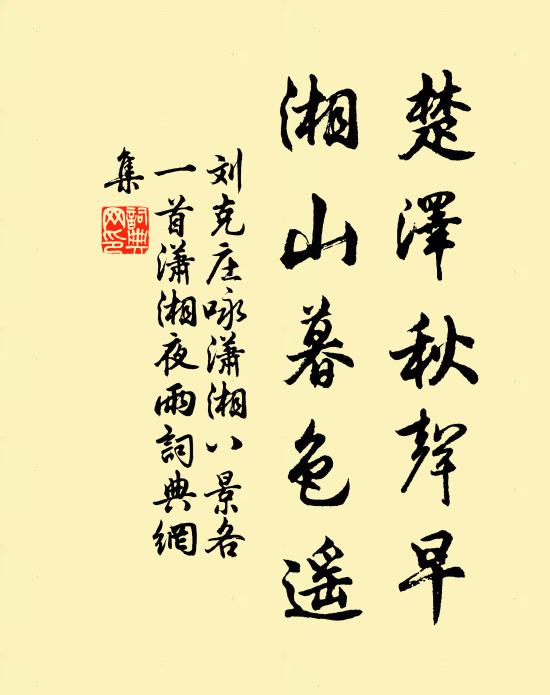 楚澤秋聲早
湘山暮色遥
刘克庄咏瀟湘八景各
一首瀟湘夜雨詞典網
集
詞典
网印